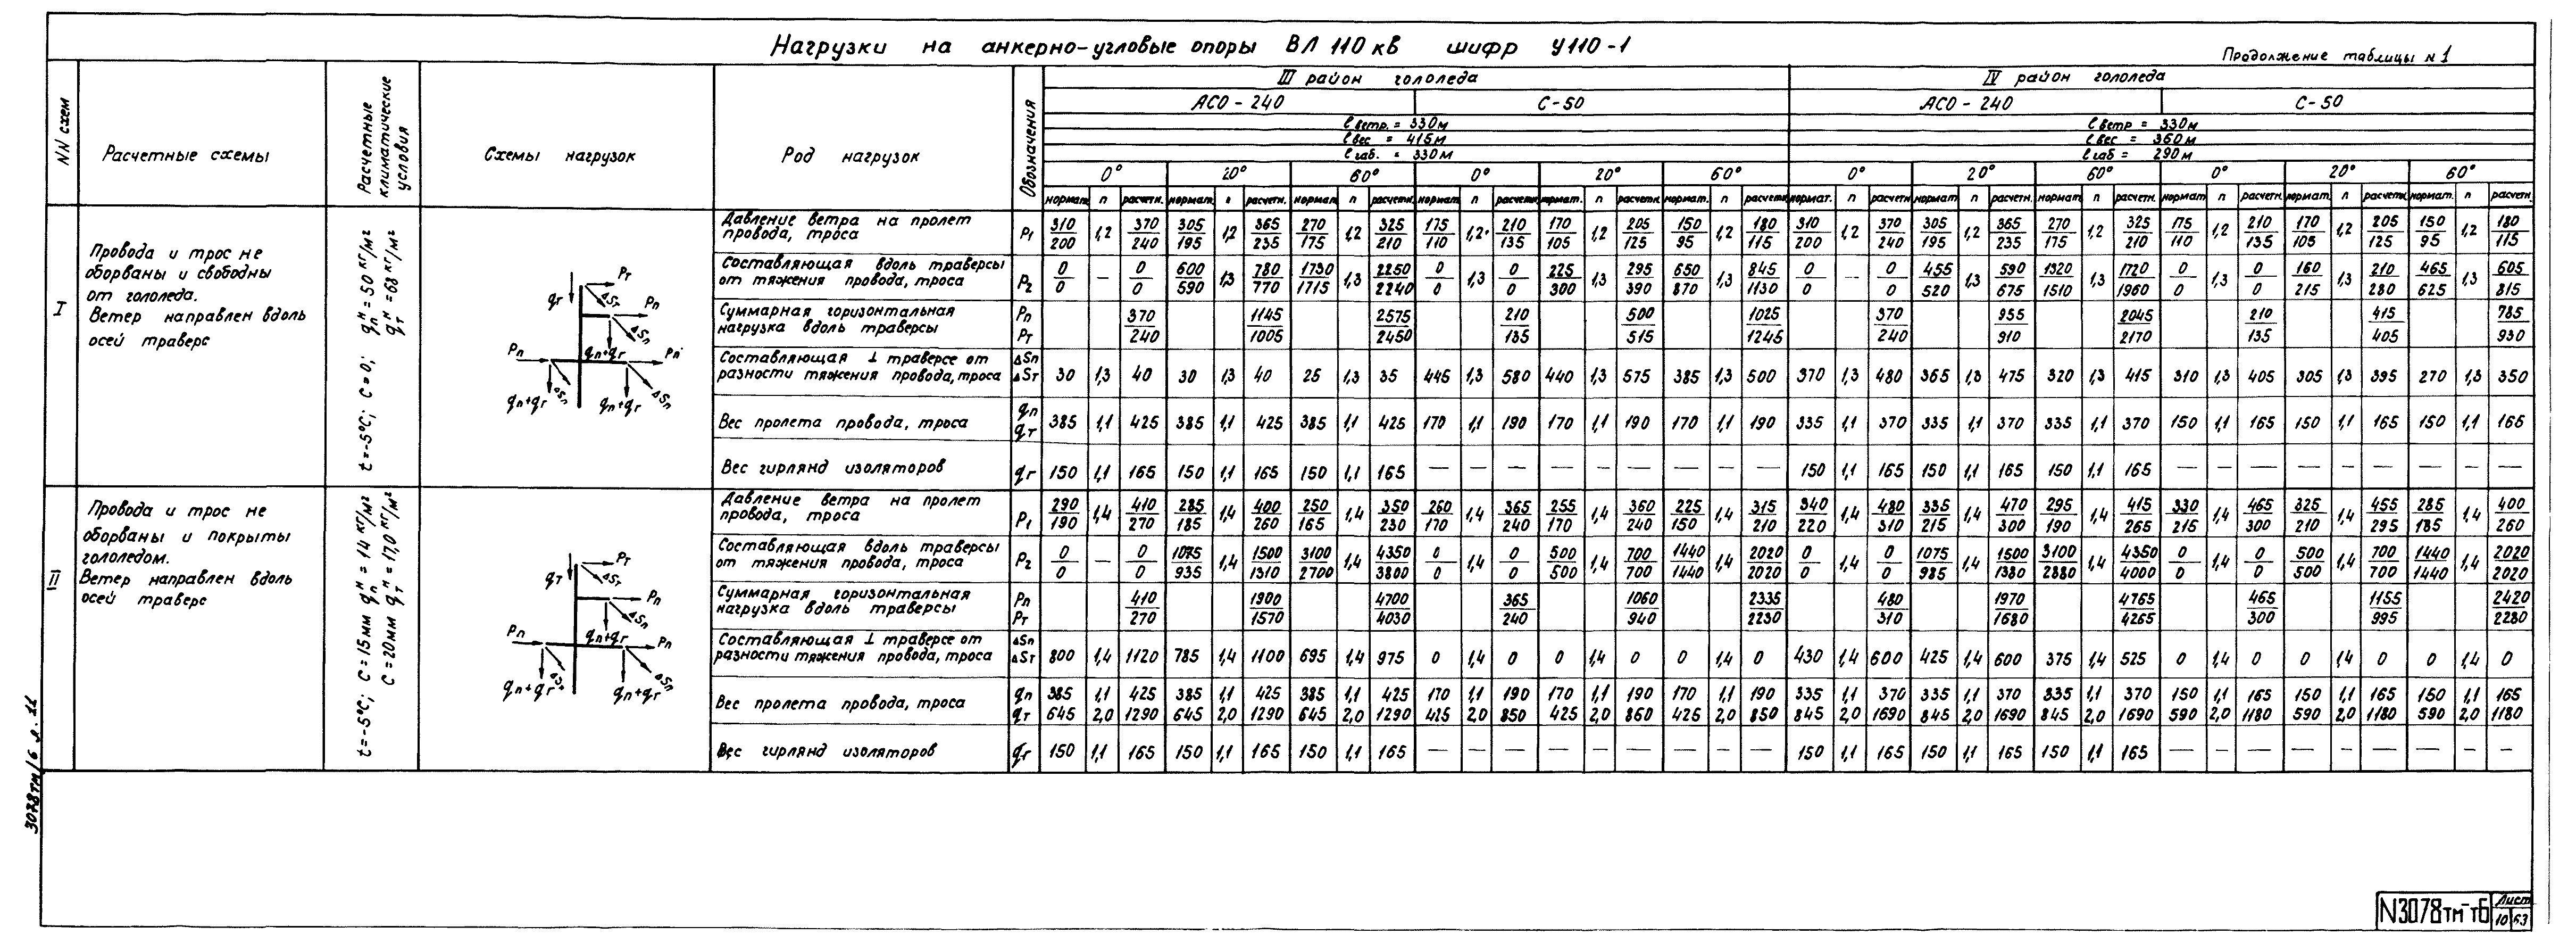 Нагрузки на анкерно-угловые опоры ВЛ 110 кв шифр У110-1
Продолжение таблицы N 1
NN схем
Расчетные схемы
Расчетные климатические условия
Схемы нагрузок
Род нагрузок
Обозначения
III район гололеда
IV район гололеда
АСО-240
С-50
АСО-240
С-50
ℓ ветр. = 330м
ℓ ветр = 330м
ℓ вес = 415м
ℓ вес = 360м
ℓ габ. = 330м
ℓ габ = 290м
0° 20° 60° 0° 20° 60° 0° 20° 60° 0° 20° 60°
нормат. n расчетн. нормат. n расчетн. нормат n расчетн. нормат n расчетн нормат. n расчетн нормат. n расчетн нормат. n расчетн нормат. n расчетн. нормат n расчетн. нормат n расчетн. нормат. n расчетн нормат. n расчетн.
I
Провода и трос не
оборваны и свободны
от гололеда.
Ветер направлен вдоль
осей траверс
t=-5°С; С=0; qпᴴ = 50 кг/м²
qтᴴ = 68 кг/м²
qг Pт ΔSт Pп ΔSп
Pп qп+qг Pп
qп+qг ΔSп qп+qг ΔSп
Давление ветра на пролет
провода, троса
P1 310/200 1,2 370/240 305/195 1,2 365/235 270/175 1,2 325/210 175/110 1,2 210/135 170/105 1,2 205/125 150/95 1,2 180/115 310/200 1,2 370/240 305/195 1,2 365/235 270/175 1,2 325/210 175/110 1,2 210/135 170/105 1,2 205/125 150/95 1,2 180/115
Составляющая вдоль траверсы
от тяжения провода, троса
P2 0/0 — 0/0 600/590 1,3 780/770 1730/1715 1,3 2250/2240 0/0 1,3 0/0 225/300 1,3 295/390 650/870 1,3 845/1130 0/0 — 0/0 455/520 1,3 590/675 1320/1510 1,3 1720/1960 0/0 1,3 0/0 160/215 1,3 210/280 465/625 1,3 605/815
Суммарная горизонтальная
нагрузка вдоль траверсы
Pп Pт 370/240 1145/1005 2575/2450 210/135 500/515 1025/1245 370/240 955/910 2045/2170 210/135 415/405 785/930
Составляющая ⊥ траверсе от
разности тяжения провода, троса
ΔSп ΔSт 30 1,3 40 30 1,3 40 25 1,3 35 445 1,3 580 440 1,3 575 385 1,3 500 370 1,3 480 365 1,3 475 320 1,3 415 310 1,3 405 305 1,3 395 270 1,3 350
Вес пролета провода, троса
qп qт 385 1,1 425 385 1,1 425 385 1,1 425 170 1,1 190 170 1,1 190 170 1,1 190 335 1,1 370 335 1,1 370 335 1,1 370 150 1,1 165 150 1,1 165 150 1,1 165
Вес гирлянд изоляторов
qг 150 1,1 165 150 1,1 165 150 1,1 165 — — — — — — — — — 150 1,1 165 150 1,1 165 150 1,1 165 — — — — — — — — —
II
Провода и трос не
оборваны и покрыты
гололедом.
Ветер направлен вдоль
осей траверс
t=-5°С; С=15мм qпᴴ = 14 кг/м²
С=20мм qтᴴ = 17,0 кг/м²
qт Pт ΔSт Pп ΔSп
Pп qп+qг Pп
qп+qг qп+qг ΔSп
Давление ветра на пролет
провода, троса
P1 290/190 1,4 410/270 285/185 1,4 400/260 250/165 1,4 350/230 260/170 1,4 365/240 255/170 1,4 360/240 225/150 1,4 315/210 340/220 1,4 480/310 335/215 1,4 470/300 295/190 1,4 415/265 330/215 1,4 465/300 325/210 1,4 455/295 285/185 1,4 400/260
Составляющая вдоль траверсы
от тяжения провода, троса
P2 0/0 — 0/0 1075/935 1,4 1500/1310 3100/2700 1,4 4350/3800 0/0 1,4 0/0 500/500 1,4 700/700 1440/1440 1,4 2020/2020 0/0 1,4 0/0 1075/985 1,4 1500/1380 3100/2880 1,4 4350/4000 0/0 1,4 0/0 500/500 1,4 700/700 1440/1440 1,4 2020/2020
Суммарная горизонтальная
нагрузка вдоль траверсы
Pп Pт 410/270 1900/1570 4700/4030 365/240 1060/940 2335/2230 480/310 1970/1680 4765/4265 465/300 1155/995 2420/2280
Составляющая ⊥ траверсе от
разности тяжения провода, троса
ΔSп ΔSт 800 1,4 1120 785 1,4 1100 695 1,4 975 0 1,4 0 0 1,4 0 0 1,4 0 430 1,4 600 425 1,4 600 375 1,4 525 0 1,4 0 0 1,4 0 0 1,4 0
Вес пролета провода, троса
qп 385 1,1 425 385 1,1 425 385 1,1 425 170 1,1 190 170 1,1 190 170 1,1 190 335 1,1 370 335 1,1 370 335 1,1 370 150 1,1 165 150 1,1 165 150 1,1 165
qт 645 2,0 1290 645 2,0 1290 645 2,0 1290 425 2,0 850 425 2,0 850 425 2,0 850 845 2,0 1690 845 2,0 1690 845 2,0 1690 590 2,0 1180 590 2,0 1180 590 2,0 1180
Вес гирлянд изоляторов
qг 150 1,1 165 150 1,1 165 150 1,1 165 — — — — — — — — — 150 1,1 165 150 1,1 165 150 1,1 165 — — — — — — — — —
3078тм/6 л. 11
N3078тм-т6
Лист
10 63